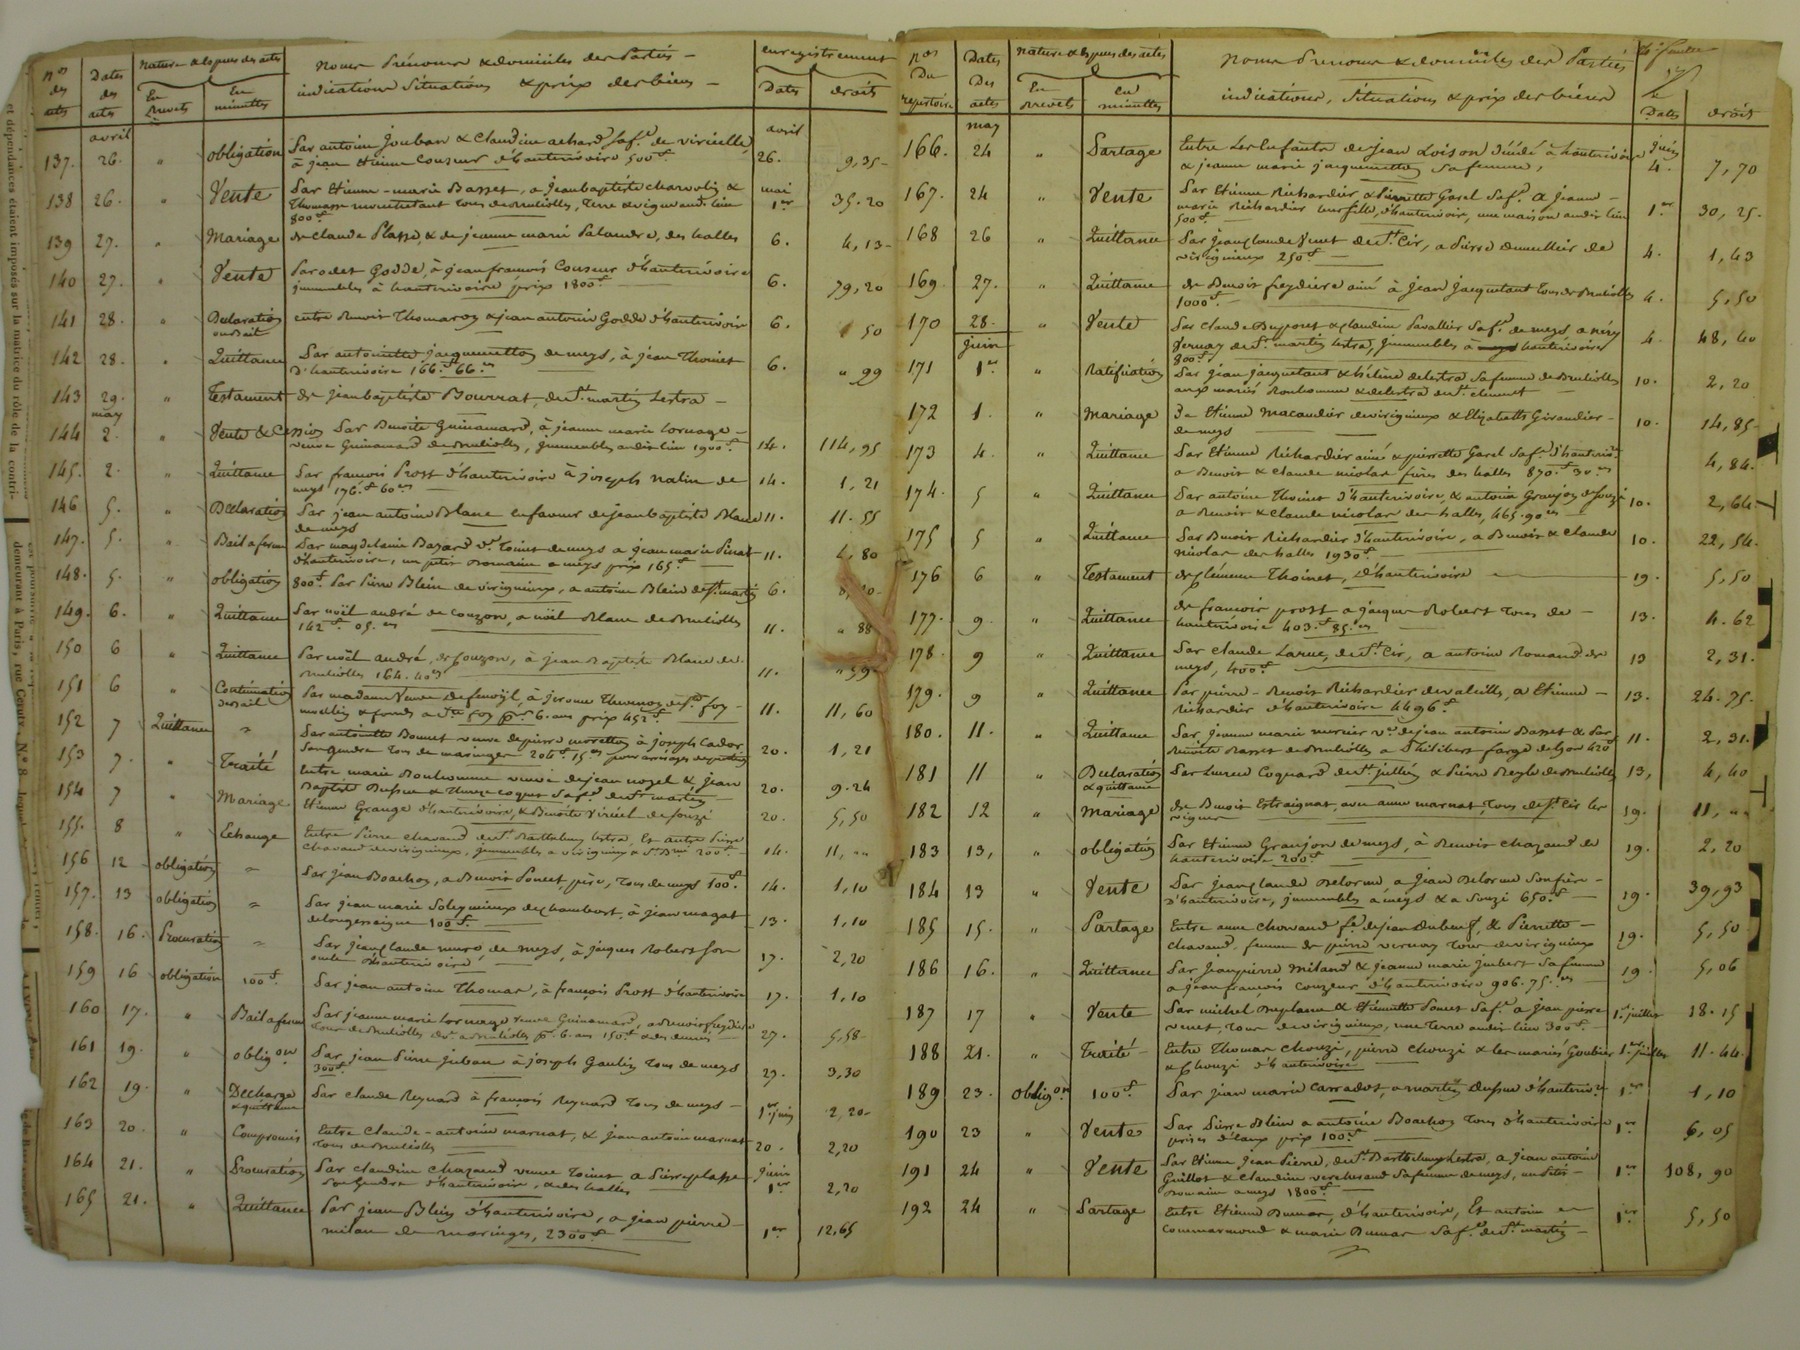 nos des actes
Dates des actes
nature & espèces des actes
En Brevets
En minuttes
noms Prénoms & domiciles des Parties
indications Situations & prix des biens
enregistrement
Dates
droits
avril
avril
137. 26. " obligation Par antoine Joubar & Claudine achard sa fe. de viricelle,
à jean Etienne Couzeur d'hauterivoire 500 f 26. 9,35
138 26. " Vente Par Etienne-marie Basset, a jeanbaptiste
Thomasse tous de Brulioles, Terre & vigne audit lieu mai 1er 35.20
800 f
139 27. " Mariage de claude Plasse, & de jeanne marie Palandre, des halles 6. 4,13
140 27. " Vente Par odet Godde, à jean francois Couzeur d'hauterivoire
immeubles à hauterivoire prix 1800 f 6. 79,20
141 28. " Declaration entre Benoit Thomaron & jean antoine Godde d'hauterivoire 6. 50
142 28. " Quittance Par antoinette jacquemetton de meys, à jean Thoinet
d'hauterivoire 166 f 66 6. " 99
143 29. " Testament de jeanbaptiste Bourrat, de St martin Lestra
may
144 2. Vente & Cession Par Benoite Guinamard, à jeanne marie tornage
veuve Guinamard de Brulioles, immeubles audit lieu 1900 f 14. 114,95
145. 2. " Quittance Par francois Prost d'hauterivoire à joseph nalin de
meys 176 f 60 14. 1,21
146 5. " Declaration Par jean antoine Blanc en faveur de jeanbaptiste Blanc
de meys 11. 11.55
147. 5. " Bail a ferme Par magdelaine Bazard ve. Toinet de meys a jean marie Pinat
d'hauterivoire, un petit domaine a meys prix 165 f 11. 80
148. 5. " obligation 800 f Par Pierre Blein de virigneux, a antoine Blein de St. martin 6.
149. 6. " Quittance Par noël andré de couzon, a noël Blanc de Brulioles
142 f 05 11. " 88
150 6 " Quittance Par noël andré, de Couzon, à jean Baptiste Blanc de
Brulioles 164. 40 11. " 59
151 6 " Continuation de bail Par madame veuve de à jerome Thevenoz de St. foy
moulin & fonds a Ste foy pr 6 ans prix 452 f 11. 11,60
152 7 Quittance " Par antoinette Bonnet veuve de pierre à joseph Cador
Son gendre tous de maringes 206 f 15 pour arrérages de pension 20. 1,21
153 7. " Traité Entre marie Bonhomme veuve de jean nozel & jean
Baptiste & coquet sa fe. de St martin 20. 9.24
154 7 " Mariage Etienne Grange d'hauterivoire, & Benoite Viricel de souzi 20. 5,50
155. 8 " Echange Entre Pierre chavand de St. Barthelemy lestra, Et autre Pierre
chavand de virigneux, immeubles a virigneux & St. 200 f 14. 11,
156 12 obligation " Par jean Boachon, a Benoit Poncet, père, tous de meys 100 f. 14. 1,10
157. 13 obligation " Par jean marie Solleymieux de chambost, à jean magat
de longessaigne 100 f. 13. 1,10
158. 16. Procuration " Par jean claude de meys, à jacques Robert son
oncle d'hauterivoire 17. 2,20
159 16 obligation 100 f Par jean antoine Thomas, à françois Prost d'hauterivoire 17. 1,10
160 17. " Bail a ferme Par jeanne marie tornage veuve Guinamard, a Benoit freydiere
tous de Brulioles pr. 6 ans 150 f & des denrées 27. 5,58
161 19. " oblig on Par jean Pierre juban à joseph Gaulin tous de meys
300 f. 27. 3,30
162 19. " Decharge & quittance Par claude Reynard à françois Reynard tous de meys 1er juin 2,20
163 20. " Compromis Entre Claude-antoine marnat, & jean antoine marnat
tous de Brulioles 20. 2,20
164 21. " Procuration Par claudine chazaud veuve Toinet a Pierre plasse
son Gendre d'hauterivoire, & des halles juin 1er 2,20
165 21. " Quittance Par jean Blein d'hauterivoire, a jean pierre
milan de maringes, 2300 f 1er 12,65
nos Du repertoire
Dates Des actes
nature & espèces des actes
En Brevets
En minuttes
noms Prenoms & domiciles des Parties
indications, Situations & prix des biens
Dates
droit
may
166. 24 " Partage Entre Les Enfants de jean Loison à hauterivoire
& jeanne marie jacquemetton sa femme, juin 4. 7,70
167. 24 " Vente Par Etienne Richardier & Pierrette Garel sa fe. a jeanne
marie Richardier leur fille, d'hauterivoire, une maison audit lieu
500 f 1er 30,25.
168 26 " Quittance Par jean claude Venet de St. Cir, a Pierre Dumillier de
virigneux 250 f 4. 1,43
169. 27. " Quittance de Benoit freydiere ainé à jean jacquetant tous de Brulioles
1000 f 4. 5,50
170 28. " Vente Par claude & claudine Lavallier sa fe. de meys, a
Vernay de St. martin lestra, immeubles à hauterivoire
800 f 4. 48,40
juin
171 1er " Ratification Par jean jacquetant & hélène delestra sa femme de Brulioles
aux mariés Bonhomme & delestra de St. clement 10. 2,20
172 1. " Mariage De Etienne Macaudier de virigneux & Elizabeth Giraudier
de meys 10. 14,85
173 4. " Quittance Par Etienne Richardier ainé & pierrette Garel sa fe. d'hauterivre
a Benoit & claude nicolas frères des halles 870 f 30 4,84.
174. 5 " Quittance Par antoine Thoinet d'hauterivoire, & antoine Granjon de souzi
a Benoit & claude nicolas des halles, 465.90 10. 2,64
175 5 " Quittance Par Benoit Richardier d'hauterivoire, a Benoit & claude
nicolas des halles 1930 f. 10. 22,54.
176 6 " Testament de clémence Thoinet, d'hauterivoire 19. 5,50
177. 9 " Quittance de francois prost a jacques Robert tous de
hauterivoire 403 f 85 13. 4.62
178. 9 " Quittance Par claude Larue, de St. Cir, a antoine Romand de
meys, 400 f 13 2,31.
179. 9 " Quittance Par pierre-Benoit Richardier de valeille, a Etienne
Richardier d'hauterivoire 4496 f 13. 24.75.
180. 11. " Quittance Par jeanne marie mercier ve. de jean antoine Basset & Par
Benoite Basset de Brulioles a Philibert farge de lyon 420 f 11. 2,31.
181 11 " Declaration & quittance Par Laurent Coquard de St. jullien & Pierre de Brulioles 13, 4,40
182 12 " Mariage de Benoit Estraignat, avec anne marnat, tous de St Cir les
vignes 19. 11,
183 13, " obligation Par Etienne Granjon de meys, à Benoit chazaud de
hauterivoire 200 f 19. 2,20
184 13 " Vente Par jean claude Delorme, a jean Delorme son frère
d'hauterivoire, immeubles a meys & a Souzi 650 f. 19. 39,93
185 15. " Partage Entre anne chavand fe. de jean Duboeuf, & Pierrette
chavand, femme de pierre vernay tous de virigneux 19. 5,50
186 16. " Quittance Par jeanpierre Miland & jeanne marie imbert sa femme
a jean françois couzeur d'hauterivoire 906. 75. 19. 5,06
187 17 " Vente Par michel & Etiennette Poncet sa fe. a jean pierre
venet, tous de virigneux, une terre audit lieu 300 f. 1er juillet 18.15
188 21. " Traité Entre Thomas chouzi, pierre chouzi & les mariés Goubier
& chouzi d'hauterivoire 1er juillet 11.44.
189 23. oblig on 100 f Par jean marie Carradot, a martin d'hauterivre 1er 1,10
190 23 " Vente Par Pierre Blein a antoine Boachon tous d'hauterivoire
prises d'eaux prix 100 f 1er 6,05
191 24 " Vente Par Etienne jean Pierre, de St. Barthelemy lestra, a jean antoine
Guillot & claudine vercherand sa femme de meys, un petit
Domaine a meys 1800 f. 1er 108,90
192 24 " Partage Entre Etienne Dumas, d'hauterivoire, Et antoine
commarmond & marie Dumas sa fe. de St. martin 1er 5,50
et dépendances étaient imposés sur la matrice du rôle de la contri-
demeurant à Paris, rue Cerutti, N° 8